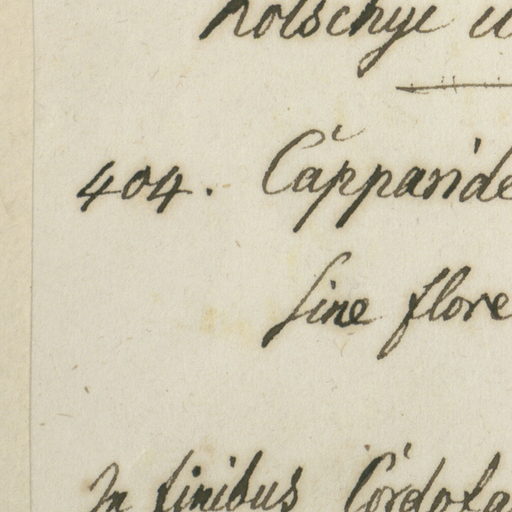 Kotschyi
404. Cappáride
sine flore
In finibus Cordofa